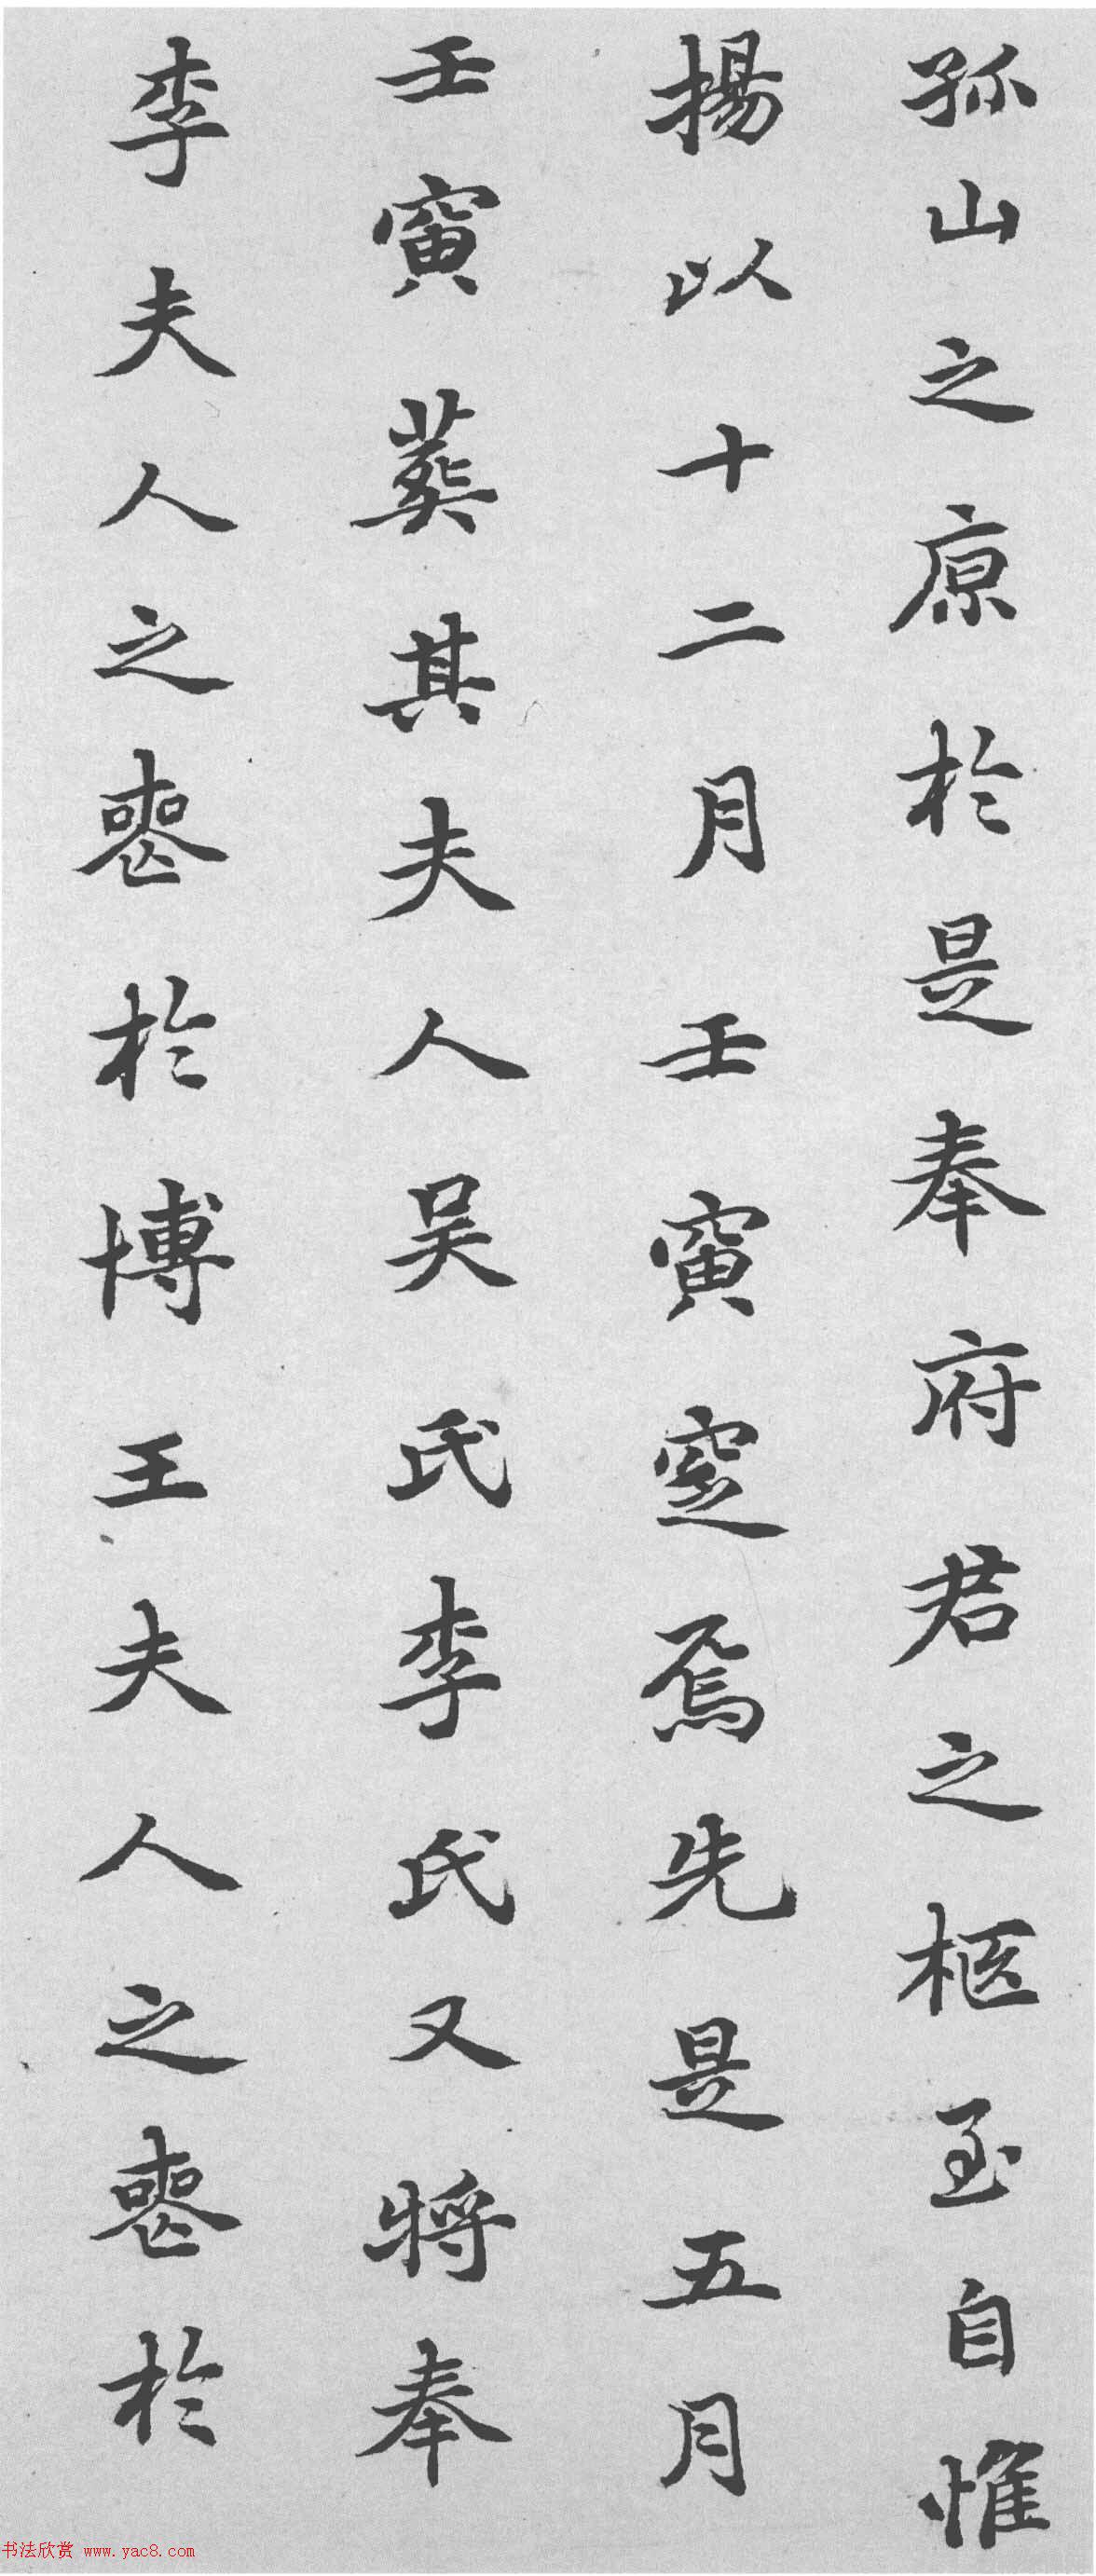 孤山之原於是奉府君之柩至自惟
揚以十二月壬寅窆焉先是五月
壬寅葬其夫人吴氏李氏又将奉
李夫人之喪於博王夫人之喪於
书法欣赏 www.yac8.com